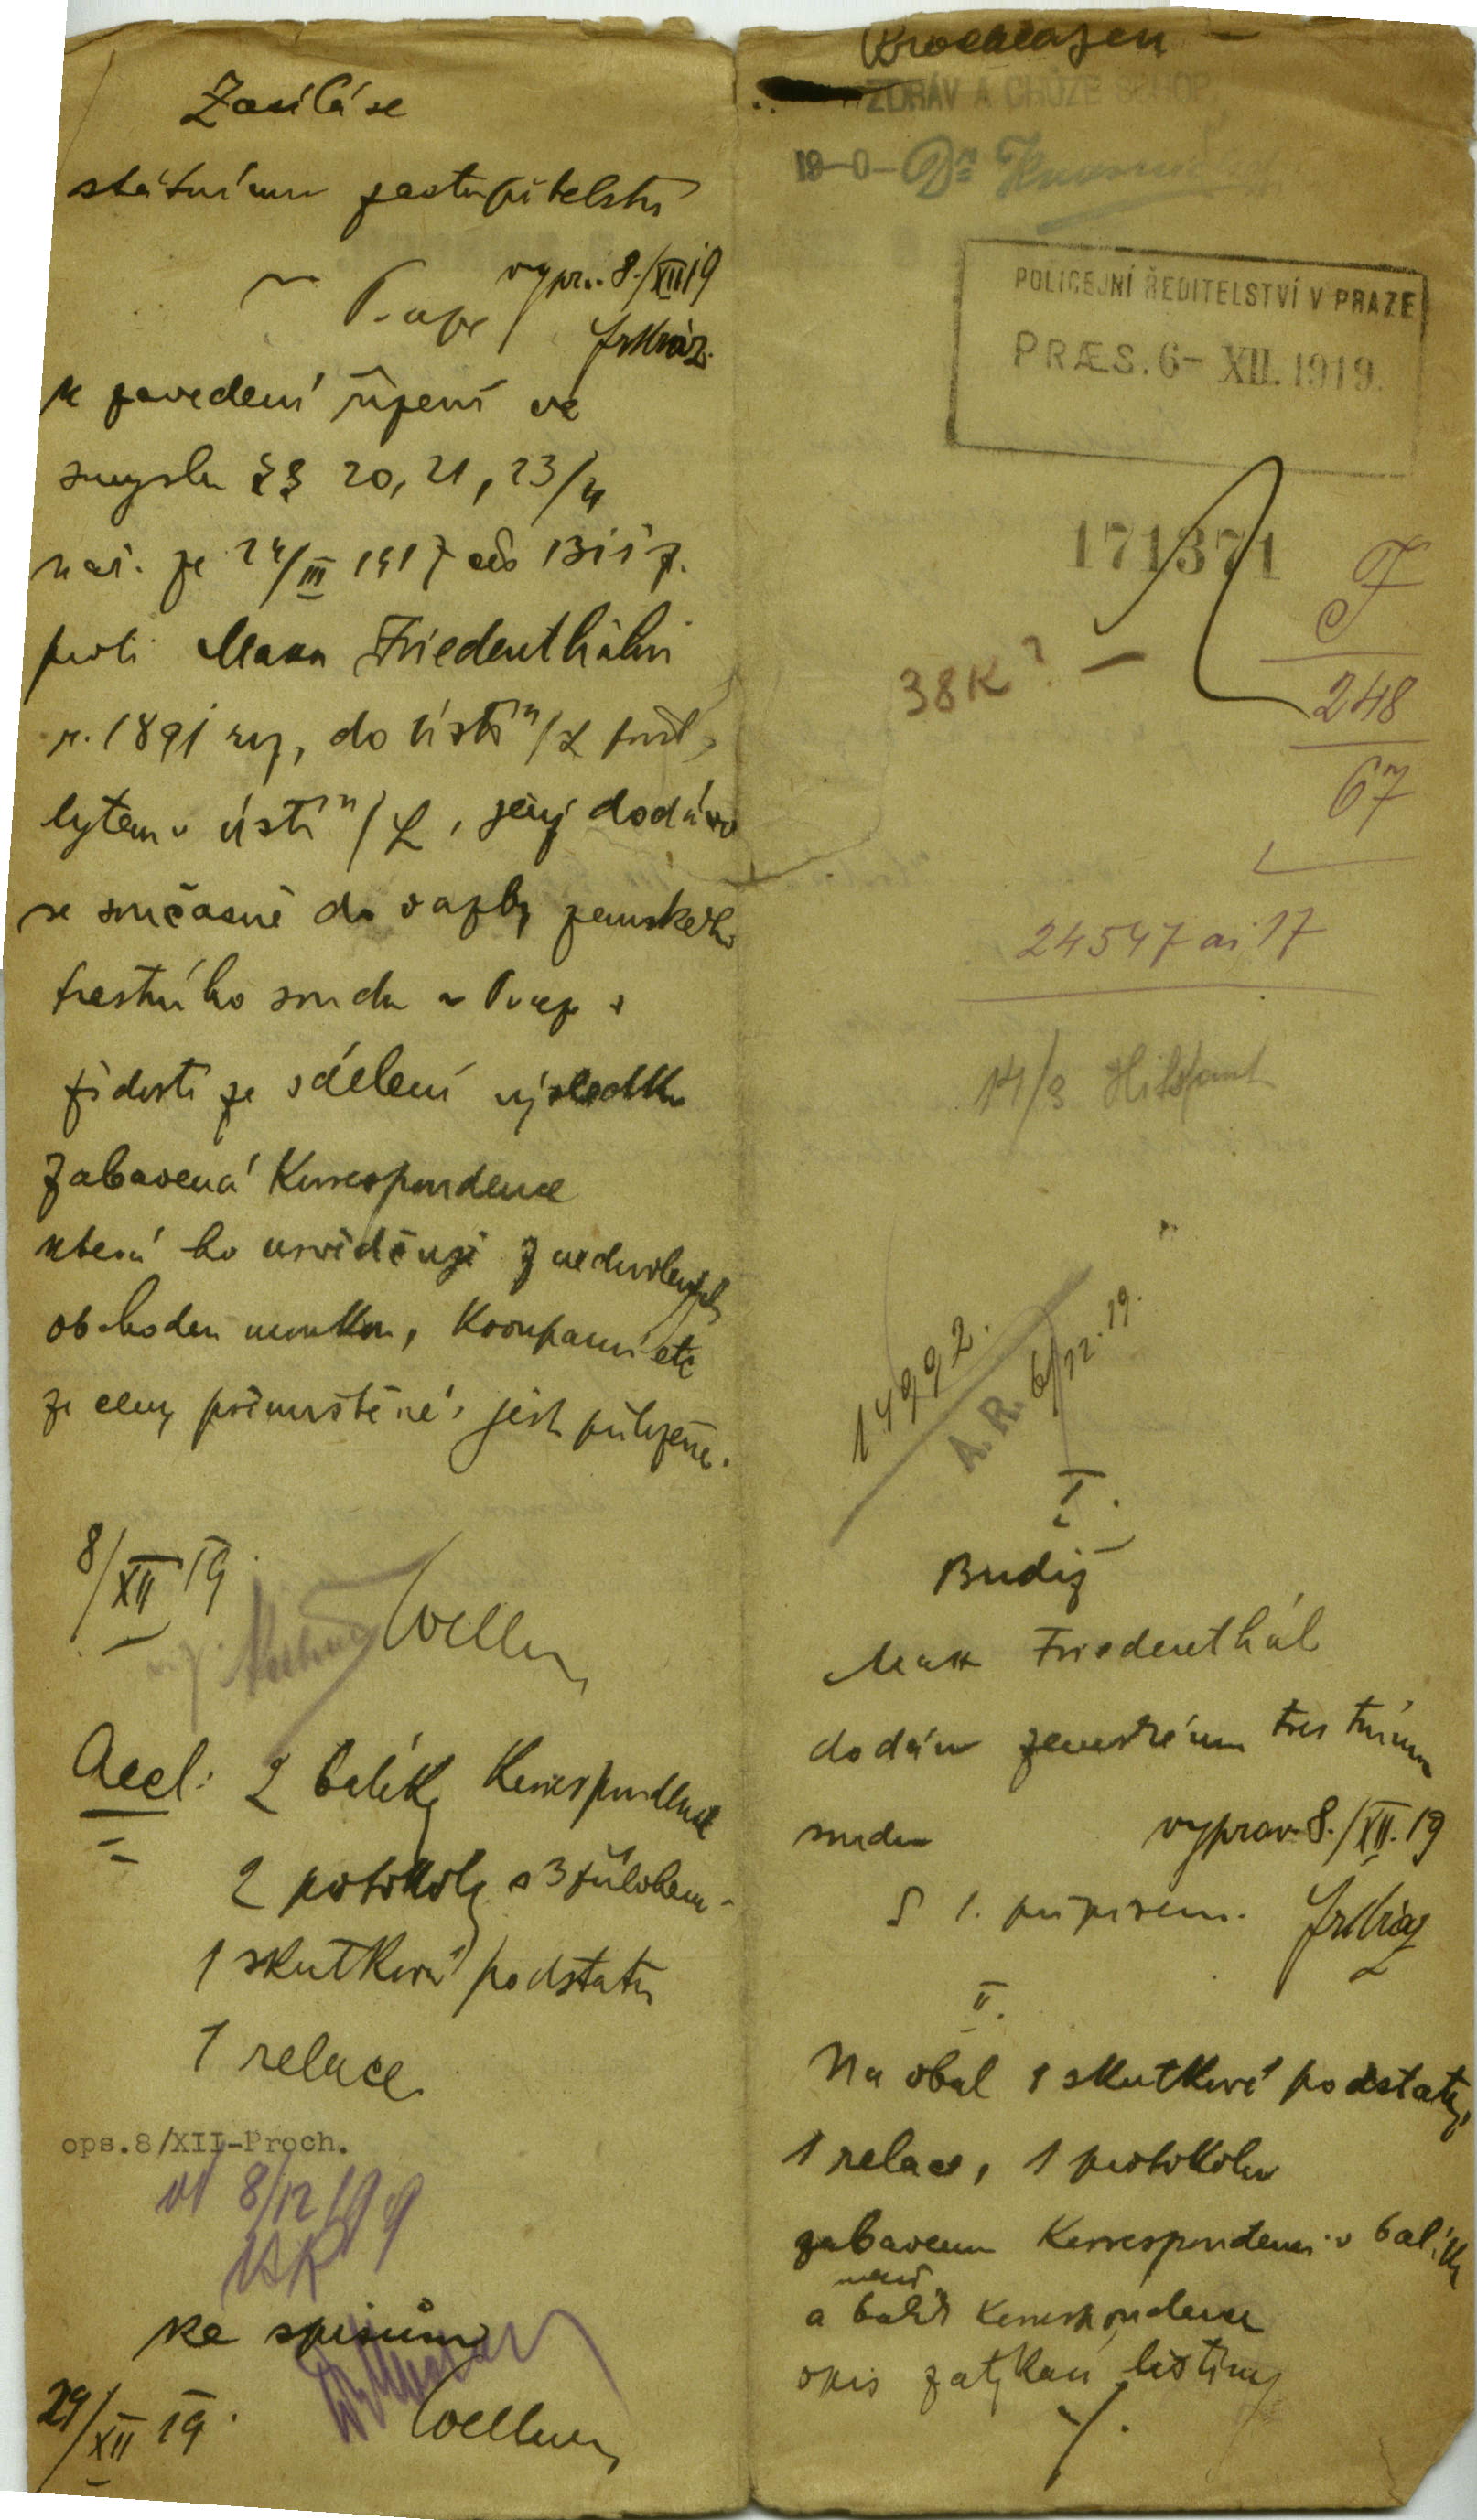 Zasílá se
státnímu zastupitelství
v Praze
vypr. 8./XII 19
k zavedení řízení ve
smyslu §§ 20, 21, 23/4
nař. ze 24/III 1917 čís 131 ř. z.
proti Maxu Friedenthálovi
n. 1891 do Ústí n/L přísl.,
bytem v Ústí n/L, jenž dodáván
se současně do vazby zemského
trestního soudu v Praze s
žádostí ze sdělení výsledku
Zabavená Korrespondence
která ho usvědčuje z nedovolených
obchodů moukou, Kroupami etc
za ceny přemrštěné, jest přiložena.
8/XII 19
Wellner
Accl: 2 balíky Korrespondence
2 protokoly s 3 přílohami
1 skutková podstata
1 relace
ops.8/XII-Proch.
8/12 19
ke spisům
29/XII 19.
Wellner
Prochlazen
ZDRÁV A CHŮZE SCHOP
19-0- Dr.
POLICEJNÍ ŘEDITELSTVÍ V PRAZE
PRÆS. 6- XII. 1919.
171371
F
248
67
38K? —
24547 ai 17
14/3
14992.
A. R. 6/12. 19.
I.
Budiž
Max Friedenthál
dodán zemskému trestnímu
soudu
vyprav. 8./XII. 19
S 1. přípisem.
II.
Na obal 1 skutkové podstaty,
1 relace, 1 protokolu
zabavenou Korrespondenci v balíku
a balík Korrespondence
opis zatýkací listiny
/.